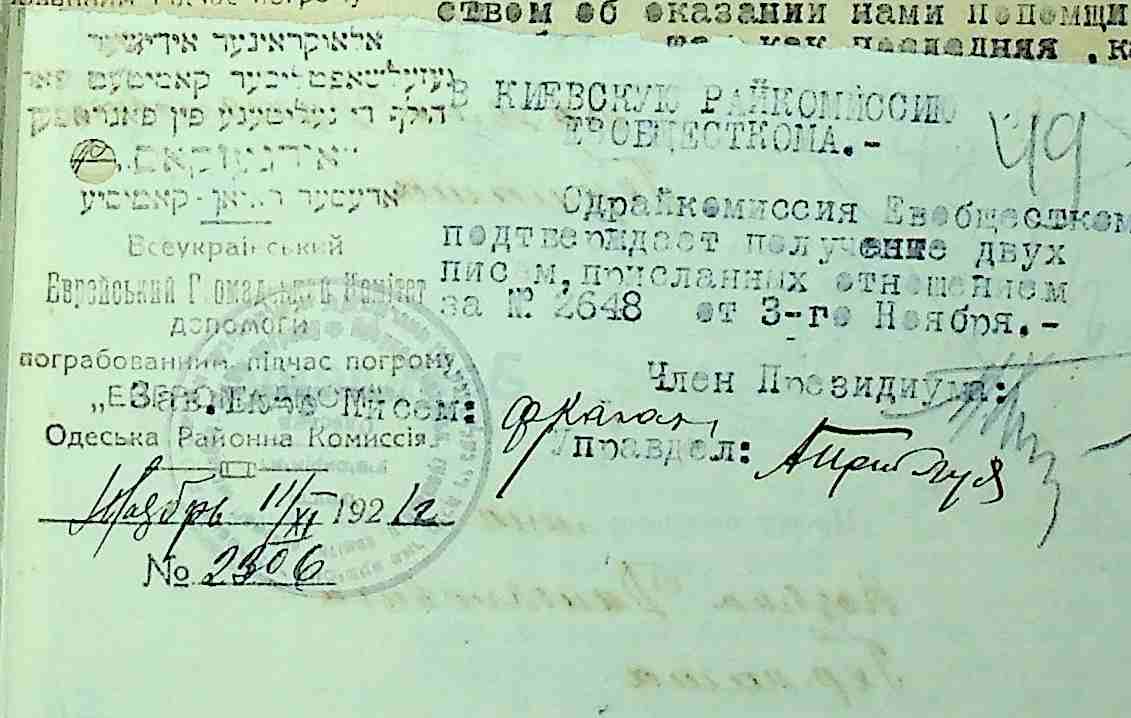 ством об оказании нами
как последняя
אלאוקראינער אידישער
געזעלשאפטליכער קאמיטעט פאר
הילף די געליטענע פין פאגראמען
אדעסער ראיאן-קאמיסיע
Всеукраїнський
Еврейський Громадський Комітет
допомоги
пограбованним підчас погрому
„ЕВГРОМАДКОМ"
Одеська Районна Комиссія
Ноябрь 11/XI 1921 г
№ 2306
В КИЕВСКУЮ РАЙКОМИССИЮ
ЕВОБЩЕСТКОМА.-
49
Одрайкомиссия Евобщестком
подтверждает получение двух
писем, присланных отношением
за № 2648 от 3-го Ноября.-
Член Президиума:
Зав. Бюро Писем:
Управдел: